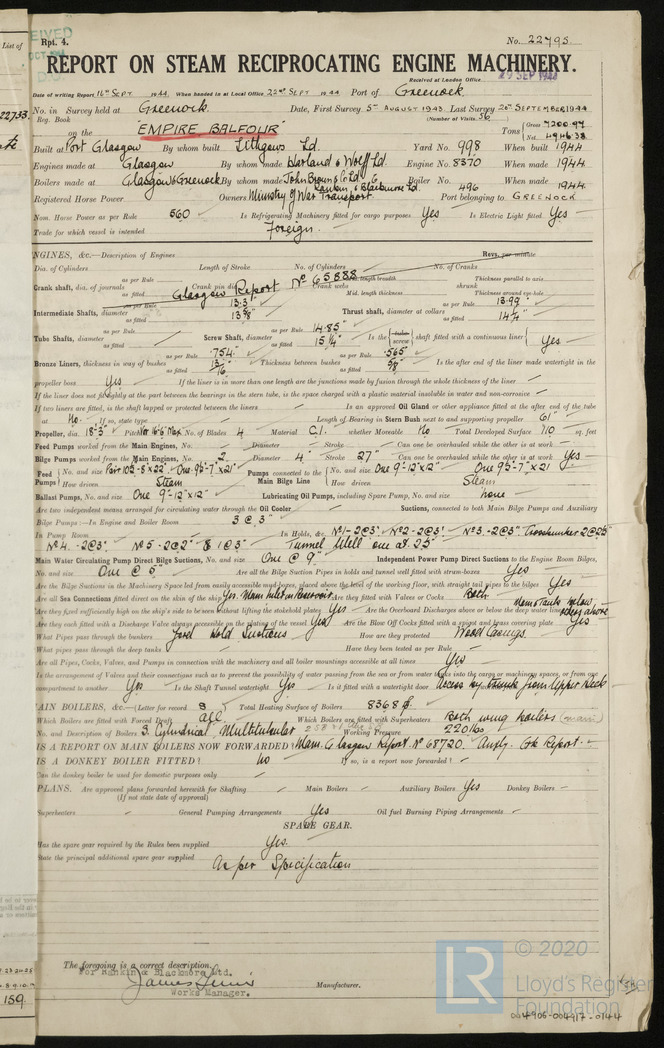 List of
Rpt. 4.
No. 22795
REPORT ON STEAM RECIPROCATING ENGINE MACHINERY.
Received at London Office
Date of writing Report 16th SEPT 1944 When handed in at Local Office 22nd SEPT 1944 Port of Greenock
No. in Survey held at Greenock Date, First Survey 5th AUGUST 1943 Last Survey 20th SEPTEMBER 1944
Reg. Book (Number of Visits 56)
on the "EMPIRE BALFOUR" Tons Gross 7200.97 Net
Built at Port Glasgow By whom built Lithgows Ld. Yard No. 998 When built 1944
Engines made at Glasgow By whom made Harland & Wolff Ld. Engine No. 8370 When made 1944
Boilers made at Glasgow & Greenock By whom made John Brown & Co Ld. Rankin & Blackmore Ld. Boiler No. 496 When made 1944
Registered Horse Power Owners Ministry of War Transport Port belonging to GREENOCK
Nom. Horse Power as per Rule 560 Is Refrigerating Machinery fitted for cargo purposes Yes Is Electric Light fitted Yes
Trade for which vessel is intended Foreign
ENGINES, &c.—Description of Engines Revs. per minute
Dia. of Cylinders Length of Stroke No. of Cylinders No. of Cranks
Crank shaft, dia. of journals as per Rule as fitted Crank pin dia. Crank webs Mid. length breadth Mid. length thickness shrunk Thickness parallel to axis Thickness around eye-hole
Glasgow Report No 65888
Intermediate Shafts, diameter as per Rule 13.3" as fitted 13 5/8" Thrust shaft, diameter at collars as per Rule 13.99" as fitted 14 1/4"
Tube Shafts, diameter as per Rule as fitted Screw Shaft, diameter as per Rule 14.85" as fitted 15 1/4" Is the tube screw shaft fitted with a continuous liner Yes
Bronze Liners, thickness in way of bushes as per Rule .754 as fitted 13/16" Thickness between bushes as per Rule .565 as fitted 5/8" Is the after end of the liner made watertight in the
propeller boss Yes If the liner is in more than one length are the junctions made by fusion through the whole thickness of the liner
If the liner does not fit tightly at the part between the bearings in the stern tube, is the space charged with a plastic material insoluble in water and non-corrosive
If two liners are fitted, is the shaft lapped or protected between the liners Is an approved Oil Gland or other appliance fitted at the after end of the tube
shaft No. If so, state type Length of Bearing in Stern Bush next to and supporting propeller 61"
Propeller, dia. 18'-3" Pitch 16'-6" Max No. of Blades 4 Material C.I. whether Moveable No Total Developed Surface 110 sq. feet
Feed Pumps worked from the Main Engines, No. Diameter Stroke Can one be overhauled while the other is at work
Bilge Pumps worked from the Main Engines, No. 2 Diameter 4" Stroke 27" Can one be overhauled while the other is at work Yes
Feed Pumps No. and size How driven Steam Pumps connected to the Main Bilge Line No. and size One 9"-12"x12" One 9 1/2"-7"x21" How driven Steam
Ballast Pumps, No. and size One 9"-12"x12" Lubricating Oil Pumps, including Spare Pump, No. and size none
Are two independent means arranged for circulating water through the Oil Cooler Suctions, connected to both Main Bilge Pumps and Auxiliary
Bilge Pumps :—In Engine and Boiler Room 3 @ 3"
In Pump Room In Holds, &c. No 1 - 2@3" No 2 - 2@3" No 3 - 2@3"
No 4 - 2@3" No 5 - 2@2" & 1@3" Tunnel Well one at 2.5"
Main Water Circulating Pump Direct Bilge Suctions, No. and size One @ 9" Independent Power Pump Direct Suctions to the Engine Room Bilges,
No. and size One @ 5" Are all the Bilge Suction Pipes in holds and tunnel well fitted with strum-boxes Yes
Are the Bilge Suctions in the Machinery Space led from easily accessible mud-boxes, placed above the level of the working floor, with straight tail pipes to the bilges Yes
Are all Sea Connections fitted direct on the skin of the ship Yes. Main Inlet on Reservoir Are they fitted with Valves or Cocks Both
Are they fixed sufficiently high on the ship's side to be seen without lifting the stokehold plates Yes Are the Overboard Discharges above or below the deep water line Main & Tanks below, others above
Are they each fitted with a Discharge Valve always accessible on the plating of the vessel Yes Are the Blow Off Cocks fitted with a spigot and brass covering plate Yes
What Pipes pass through the bunkers Ford Hold Suctions How are they protected Wood Casings
What pipes pass through the deep tanks Have they been tested as per Rule
Are all Pipes, Cocks, Valves, and Pumps in connection with the machinery and all boiler mountings accessible at all times Yes
Is the arrangement of Valves and their connections such as to prevent the possibility of water passing from the sea or from water tanks into the cargo or machinery spaces, or from one
compartment to another Yes Is the Shaft Tunnel watertight Yes Is it fitted with a watertight door Access by trunk from Upper Deck
MAIN BOILERS, &c.—(Letter for record S) Total Heating Surface of Boilers 8368
Which Boilers are fitted with Forced Draft all Which Boilers are fitted with Superheaters Both wing boilers (main)
No. and Description of Boilers 3 Cylindrical Multitubular Working Pressure 220 lbs
IS A REPORT ON MAIN BOILERS NOW FORWARDED? Main. Glasgow Report No 68720. Auxly. Gk Report
IS A DONKEY BOILER FITTED? No If so, is a report now forwarded?
Can the donkey boiler be used for domestic purposes only
PLANS. Are approved plans forwarded herewith for Shafting Main Boilers Auxiliary Boilers Yes Donkey Boilers
(If not state date of approval)
Superheaters General Pumping Arrangements Yes Oil fuel Burning Piping Arrangements
SPARE GEAR.
Has the spare gear required by the Rules been supplied Yes.
State the principal additional spare gear supplied As per Specification
The foregoing is a correct description.
For Rankin & Blackmore Ltd.
Works Manager. Manufacturer.
159
LR © 2020
Lloyd's Register
Foundation
004906-004917-0144